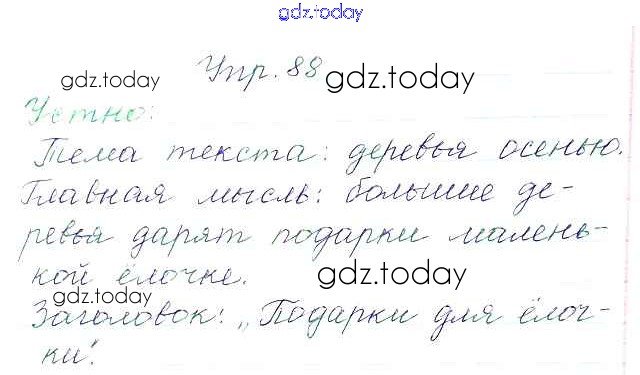 gdz.today
Упр. 88 gdz.today
gdz.today
Устно:
Тема текста: деревья осенью.
Главная мысль: большие де-
ревья дарят подарки малень-
кой ёлочке.
gdz.today
gdz.today
Заголовок: „Подарки для ёлоч-
ки".